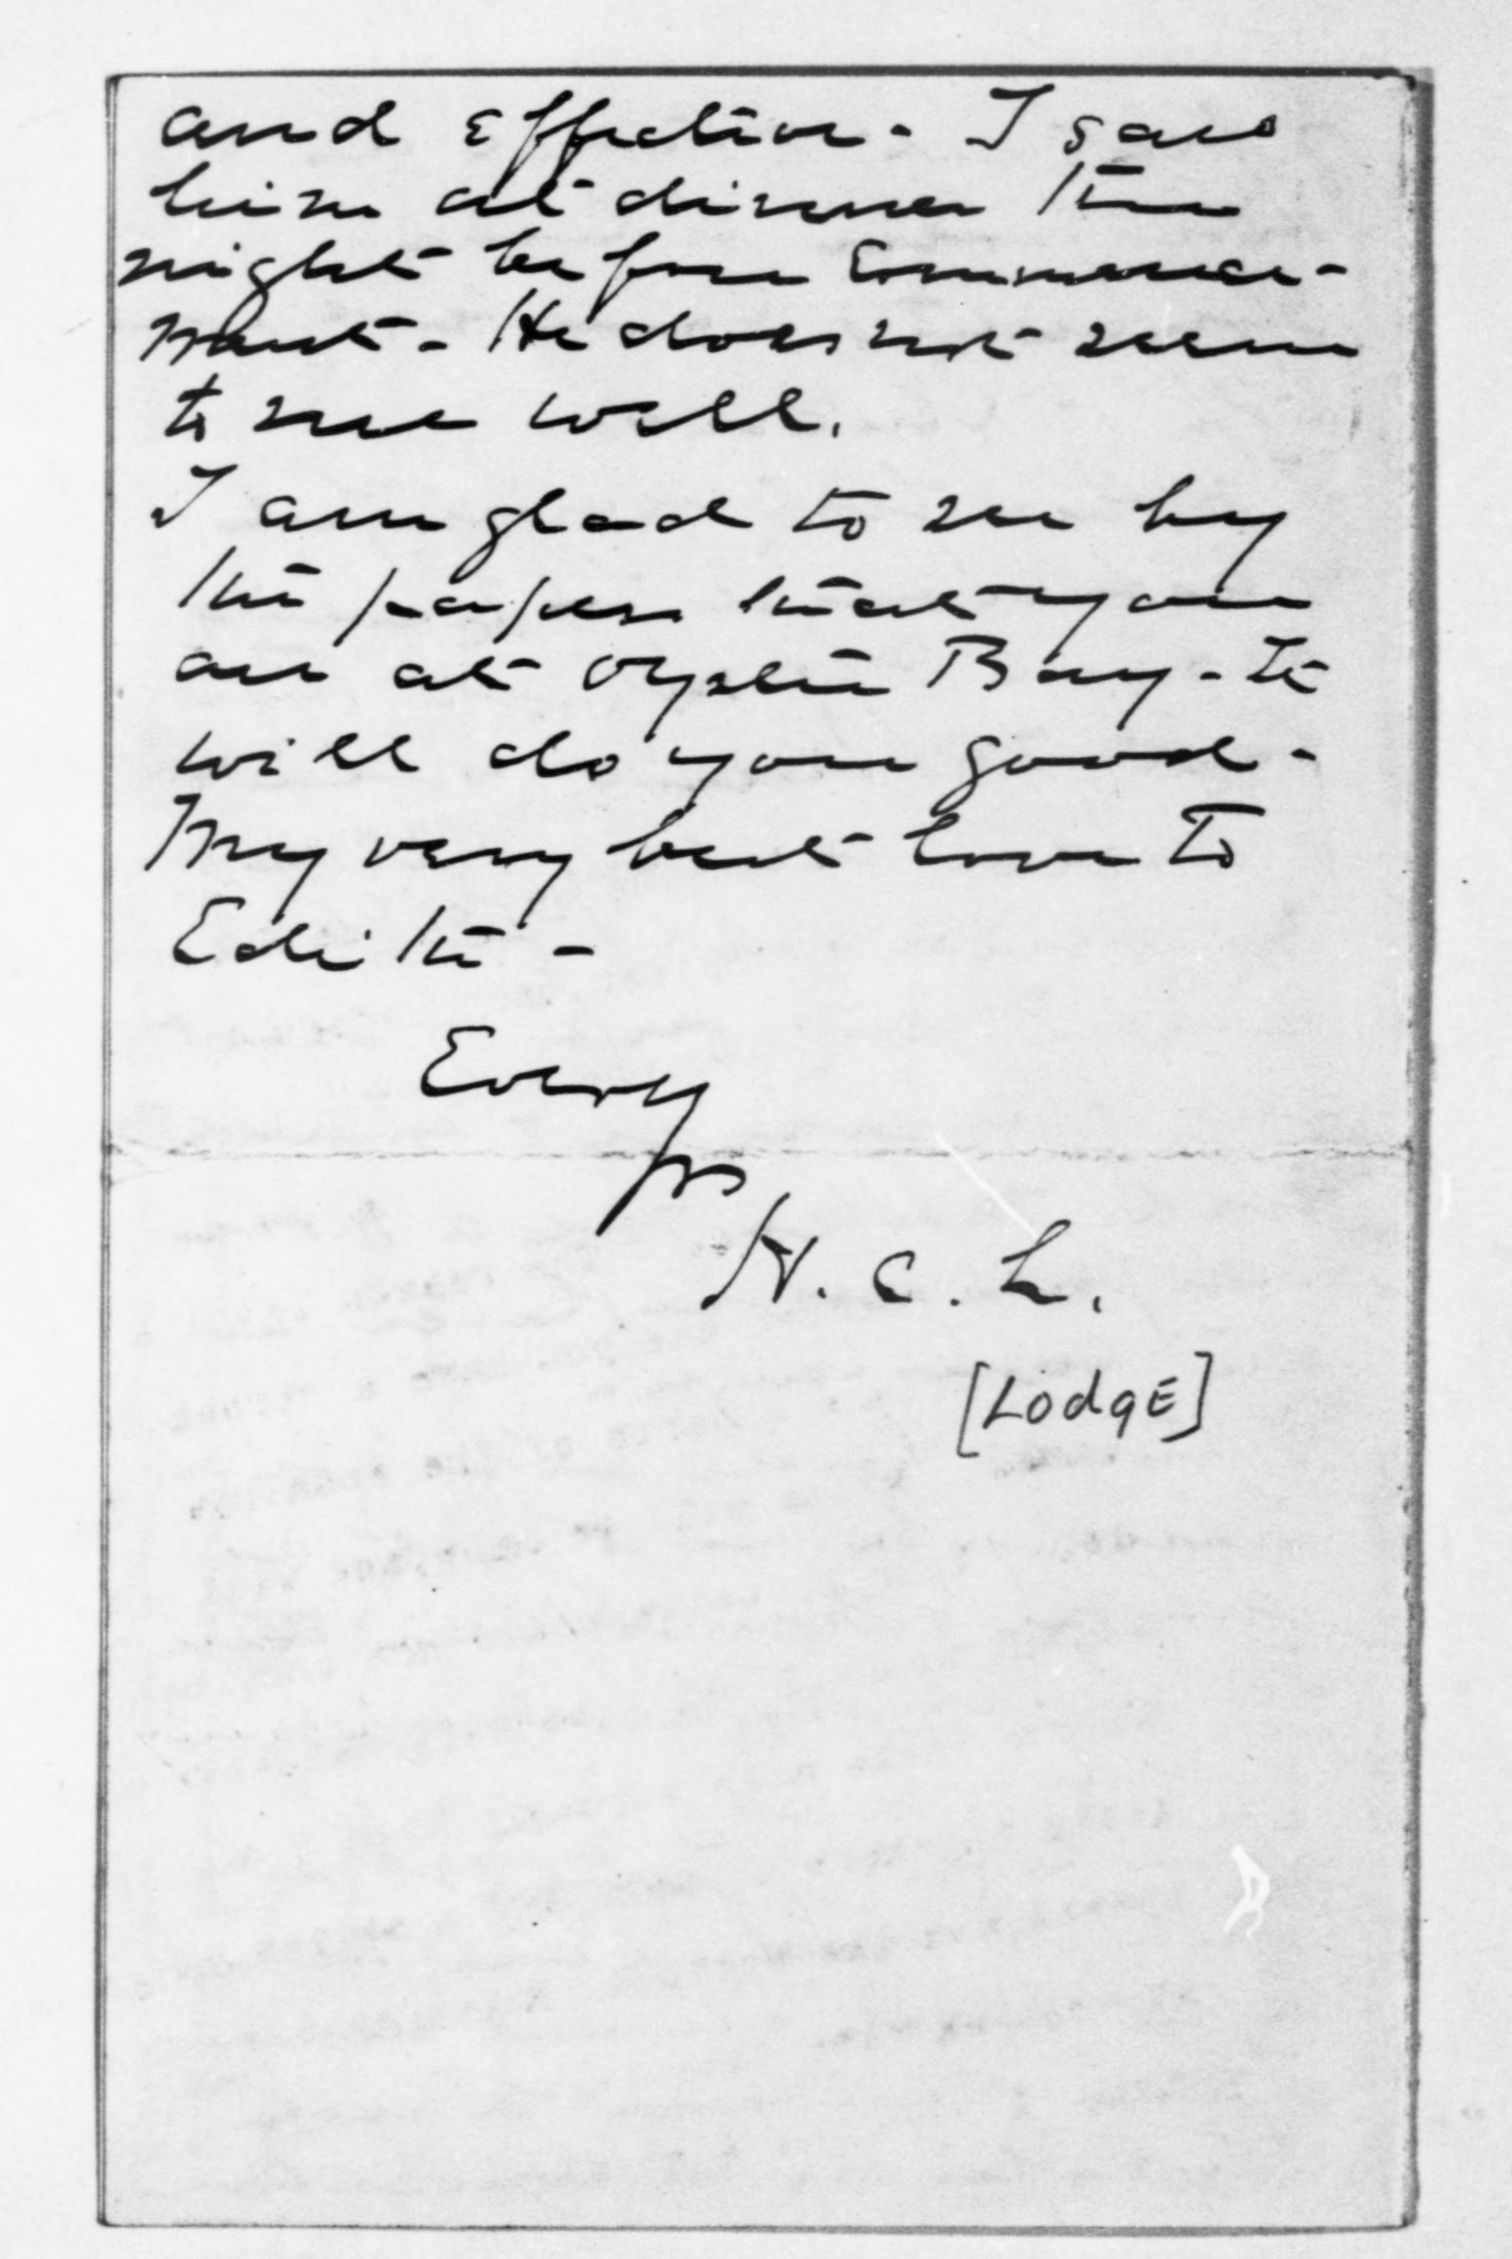 and effective - I saw
him at dinner the
night before Commence-
ment - He does not seem
to me well.
I am glad to see by
the papers that you
are at Oyster Bay - It
will do you good -
My very best love to
Edith -
Ever
yrs
H. C. L.
[Lodge]